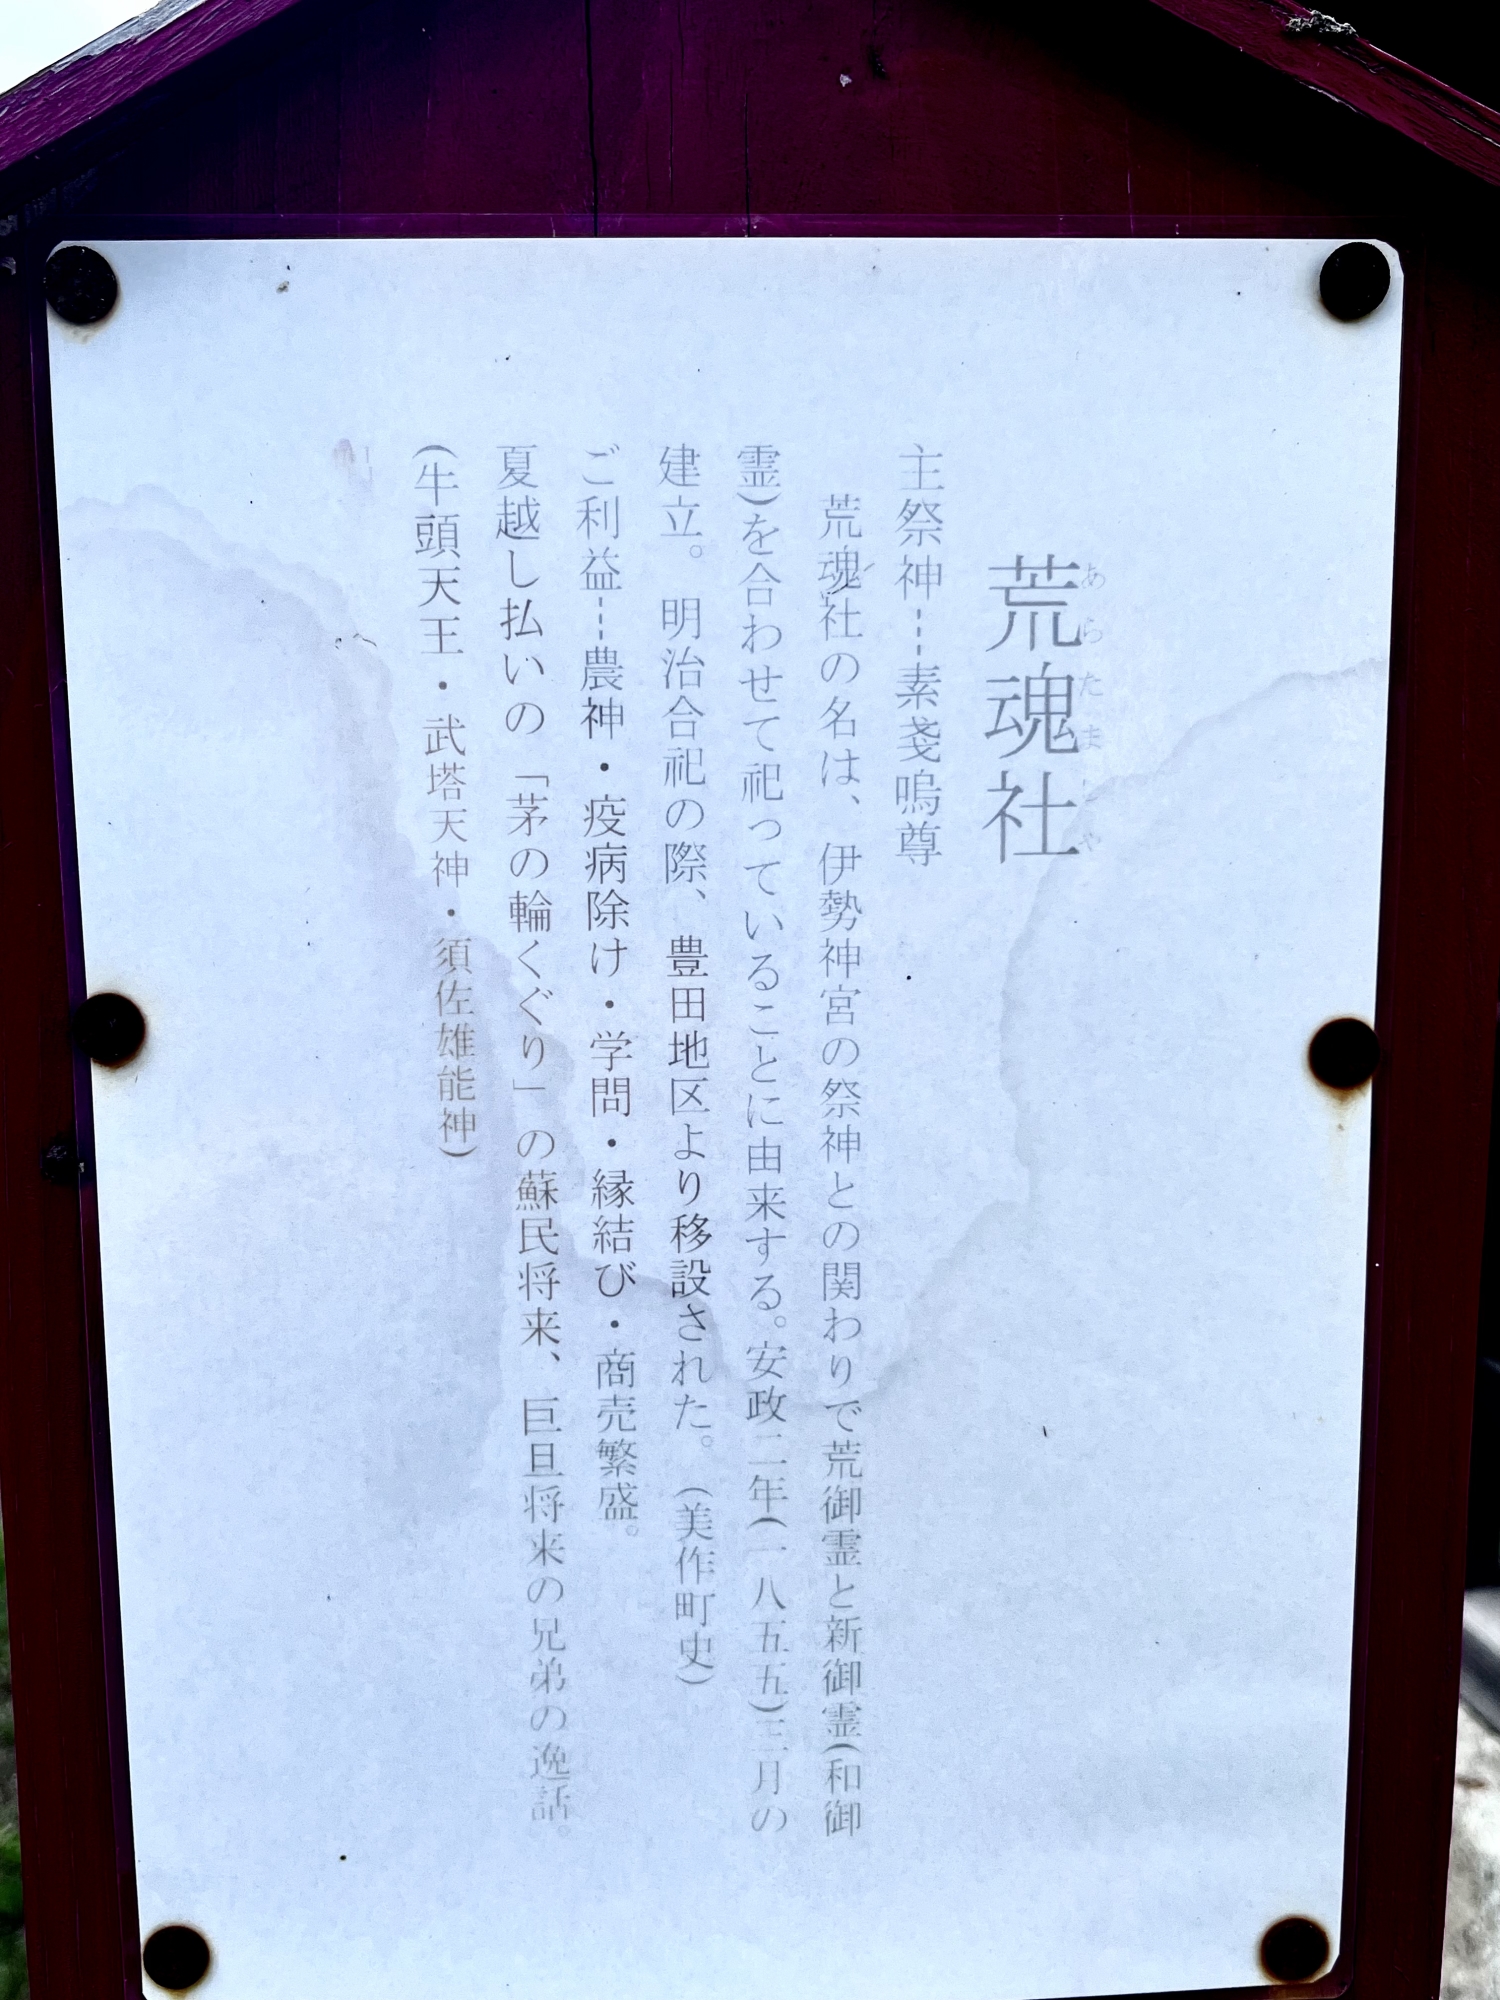 荒魂社
あらたましゃ
主祭神---素戔嗚尊
荒魂社の名は、伊勢神宮の祭神との関わりで荒御霊と新御霊(和御
霊)を合わせて祀っていることに由来する。安政二年(一八五五)三月の
建立。明治合祀の際、豊田地区より移設された。(美作町史)
ご利益---農神・疫病除け・学問・縁結び・商売繁盛。
夏越し払いの「茅の輪くぐり」の蘇民将来、巨旦将来の兄弟の逸話。
(牛頭天王・武塔天神・須佐雄能神)